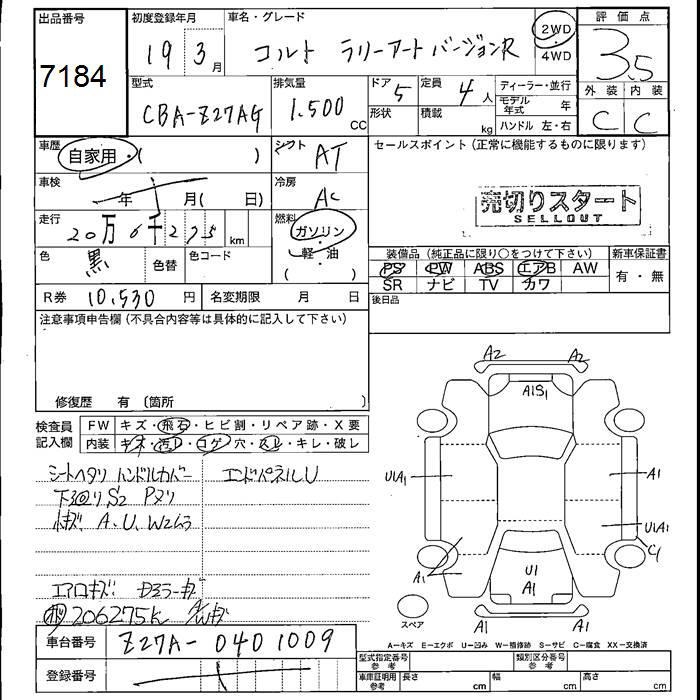 出品番号
7184
初度登録年月
19 3月
車名・グレード
コルト ラリーアートバージョンR
2WD
4WD
評価点
3.5
外装 内装
C C
型式
CBA-Z27AG
排気量
1.500 CC
ドア 5
形状
定員 4人
積載 kg
ディーラー・並行
モデル年式 年
ハンドル 左・右
車歴
自家用・( )
シフト AT
車検
年 月( 日)
冷房 AC
走行
20万6千275km
燃料
ガソリン
軽・油
( )
色 黒
色替
色コード
R券 10,530円
名変期限 月 日
セールスポイント (正常に機能するものに限ります)
売切りスタート
SELLOUT
装備品 (純正品に限り○をつけて下さい)
PS PW ABS エアB AW
SR ナビ TV カワ
新車保証書
有・無
後日品
注意事項申告欄 (不具合内容等は具体的に記入して下さい)
修復歴 有 〔箇所 〕
検査員記入欄
FW キズ・飛石・ヒビ割・リペア跡・X要
内装 キズ・汚れ・コゲ・穴・スレ・キレ・破レ
シートヘタリ ハンドルカバー
下回り S2 Pヌリ
小キズ A.U.W2ケ3
エンドパネルU
エアロキズ Dミラーキズ
206275K A/Wキズ
車台番号 Z27A-0401009
登録番号
A2 A2
A1S1
U1A1 A1
U1A1
C1
A1
U1
A1
A1 A1
スペア
A-キズ E-エクボ U-凹み W-補修跡 S-サビ C-腐食 XX-交換済
型式指定番号 参考
類別区分番号 参考
車庫証明用 参考
長さ cm
幅 cm
高さ cm